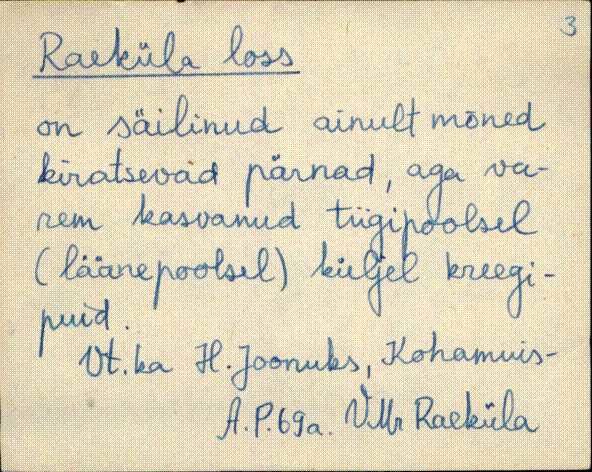 3
Raeküla loss
on säilinud ainult mõned
kiratsevad pärnad, aga va-
rem kasvanud tiigipoolsel
(läänepoolsel) küljel kreegi-
puid.
Vt. ka H. Joonuks, Kohamuis-
A.P. 69a. VMr Raeküla